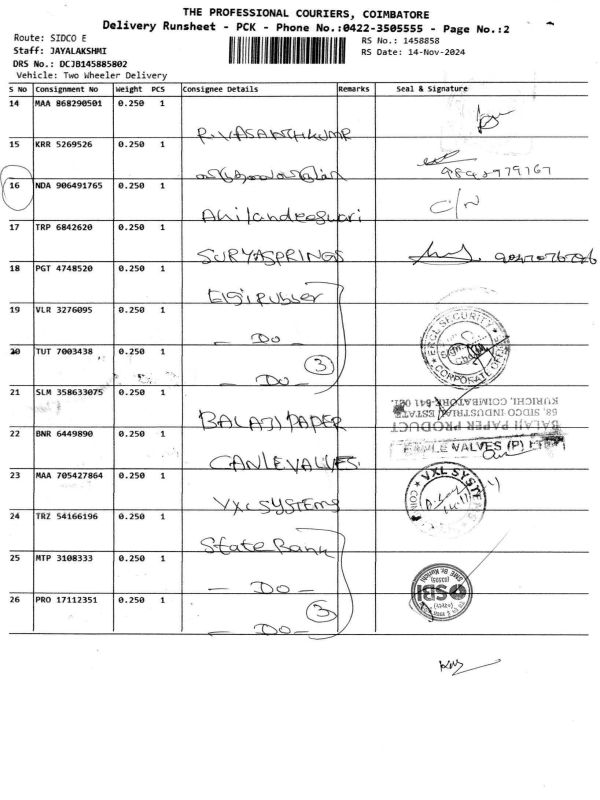 THE PROFESSIONAL COURIERS, COIMBATORE
Delivery Runsheet - PCK - Phone No.:0422-3505555 - Page No.:2
Route: SIDCO E
RS No.: 1458858
Staff: JAYALAKSHMI
RS Date: 14-Nov-2024
DRS No.: DCJB145885802
Vehicle: Two Wheeler Delivery
S No Consignment No Weight PCS Consignee Details Remarks Seal & Signature
14 MAA 868290501 0.250 1
R.VASANTHKUMAR
15 KRR 5269526 0.250 1
16 NDA 906491765 0.250 1
Ahilandeeswari C/N
17 TRP 6842620 0.250 1
SURYASPRINGS
18 PGT 4748520 0.250 1
Elgi rubber
19 VLR 3276095 0.250 1
- Do -
20 TUT 7003438 0.250 1
- Do - 3
21 SLM 358633075 0.250 1
BALAJI PAPER
BALAJI PAPER PRODUCT
68, SIDCO INDUSTRIAL ESTATE
KURICHI, COIMBATORE-641 021.
22 BNR 6449890 0.250 1
CANLEVALVES
VALVES (P) LTD
23 MAA 705427864 0.250 1
VXL SYSTEMS
VXL SYSTEMS
24 TRZ 54166196 0.250 1
State Bank
25 MTP 3108333 0.250 1
- Do -
SBI
26 PRO 17112351 0.250 1
- Do - 3